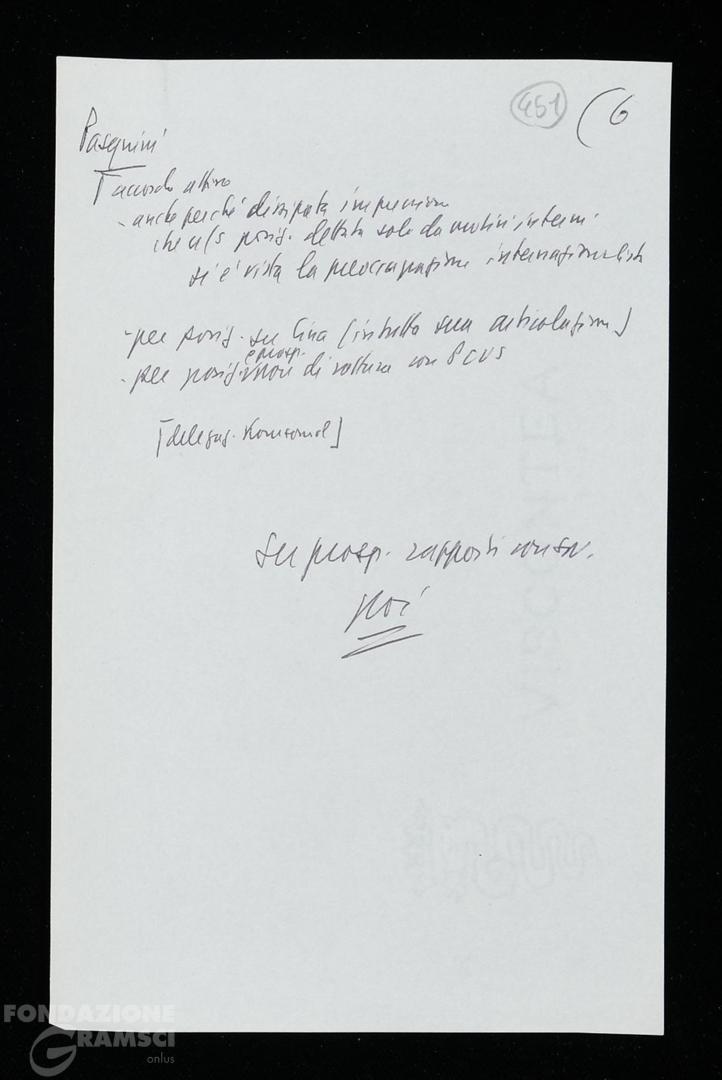 451 (6
Pasquini
accordo attivo
- anche perché dissipata impressione
che n/s posiz. dettata solo da motivi interni.
si è vista la preoccupazione internazionalista
- per posiz. su Cina [in tutta sua articolazione]
e prosp.
- per posiz. di rottura con PCUS
[delegaz. Komsomol]
su prosp. rapporti con
poi
FONDAZIONE
GRAMSCI
onlus